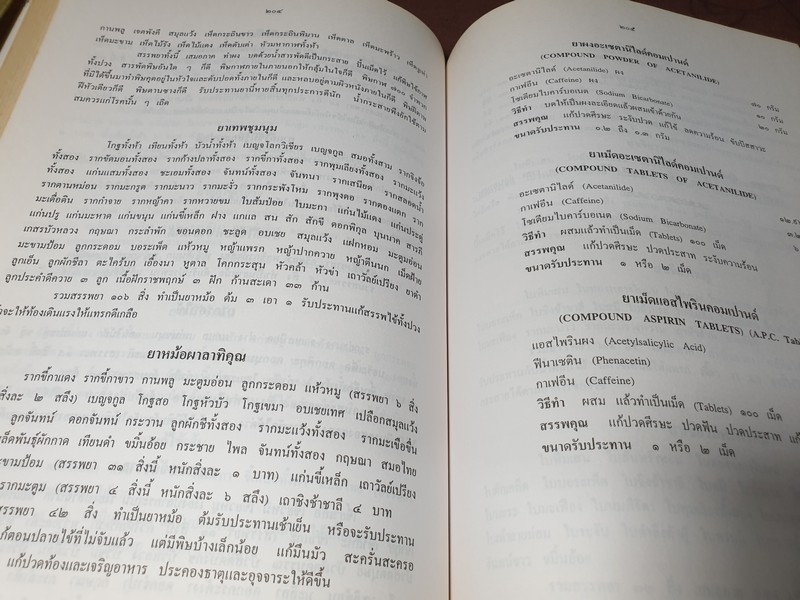 ๒๓๔
กานพลู เจตพังคี สมุลแว้ง เห็ดกระถินขาว เห็ดกระถินพิมาน เห็ดตาล เห็ดมะพร้าว
เห็ดมะขาม เห็ดไม้รัง เห็ดไม้แดง เห็ดตับเต่า หัวมหากาฬทั้งห้า
สรรพยาทั้งนี้ เสมอภาค ทำผง บดด้วยน้ำสารพัดดีเป็นกระสาย ปั้นเม็ดไว้
ทั้งปวง สารพัดพิษอันใด ๆ ก็ดี พิษกาฬภายในภายนอกให้กลุ้มในใจก็ดี พิษกาฬ ๗๐๐ จำพวก
ที่มิได้ขึ้นมาทำพิษคุดอยู่ในหัวใจและตับปอดทั้งภายในก็ดี และหลบอยู่ตามผิวหนังภายในก็ดี
ฝีหัวเดียวก็ดี พิษคานซวงก็ดี รับประทานยานี้หายสิ้นทุกประการดีนัก น้ำกระสายพึงยักใช้ตาม
สมควรแก่โรคนั้น ๆ เถิด
ยาเทพชุมนุม
โกฐทั้งห้า เทียนทั้งห้า บัวน้ำทั้งห้า เบญจโลกวิเชียร เบญจกูล สมอทั้งสาม
ทั้งสอง รากชัดมอนทั้งสอง รากก้างปลาทั้งสอง รากขี้กาทั้งสอง รากพุมเลียงทั้งสอง
ทั้งสอง แก่นแสมทั้งสอง ชะเอมทั้งสอง จันทน์ทั้งสอง จันทนา รากเสนียด
รากตานหม่อน รากมะกรูด รากมะนาว รากมะงั่ว รากกระพังโหม รากพุงดอ รากตองแตก ราก
มะเดื่อดิน รากกำจาย รากหญ้าคา รากหวายขม ใบส้มป่อย ใบมะกา แก่นไม้แดง แก่นประดู่
แก่นปรู แก่นมะหาด แก่นขนุน แก่นขี้เหล็ก ฝาง แกแล สน สัก สักขี ดอกพิกุล บุนนาค สารภี
เกสรบัวหลวง กฤษณา กระลำพัก ขอนดอก ชะลูด อบเชย สมุลแว้ง แฝกหอม มะตูมอ่อน
มะขามป้อม ลูกกระดอม บอระเพ็ด แห้วหมู หญ้าแพรก หญ้าปากควาย หญ้าตีนนก เม็ดฝ้าย
ลูกเอ็น ลูกผักชีลา ตะไคร้บก เอื้องนา หูตาล โคกกระสุน หัวคล้า หัวข่า เถาวัลย์เปรียง ยาดำ
ลูกประคำดีควาย ๓ ลูก เนื้อฝักราชพฤกษ์ ๓ ฝัก ก้านสะเดา ๓๓ ก้าน
รวมสรรพยา ๑๐๖ สิ่ง ทำเป็นยาหม้อ ต้ม ๓ เอา ๑ รับประทานแก้สรรพไข้ทั้งปวง
จะให้ท้องเดินแรงให้แทรกดีเกลือ
ยาหม้อผาลาทิคุณ
รากขี้กาแดง รากขี้กาขาว กานพลู มะตูมอ่อน ลูกกระดอม แห้วหมู (สรรพยา ๖ สิ่ง
สิ่งละ ๒ สลึง) เบญจกูล โกฐสอ โกฐหัวบัว โกฐเขมา อบเชยเทศ เปลือกสมุลแว้ง
ลูกจันทน์ ดอกจันทน์ กระวาน ลูกผักชีทั้งสอง รากมะแว้งทั้งสอง รากมะเขือขื่น
เมล็ดพันธุ์ผักกาด เทียนดำ ขมิ้นอ้อย กระชาย ไพล จันทน์ทั้งสอง กฤษณา สมอไทย
มะขามป้อม (สรรพยา ๓๑ สิ่งนี้ หนักสิ่งละ ๑ บาท) แก่นขี้เหล็ก เถาวัลย์เปรียง
รากมะตูม (สรรพยา ๔ สิ่งนี้ หนักสิ่งละ ๖ สลึง) เถาชิงช้าชาลี ๔ บาท
สรรพยา ๔๒ สิ่ง ทำเป็นยาหม้อ ต้มรับประทานเช้าเย็น หรือจะรับประทาน
แก้ตอนปลายไข้ที่ไม่จับแล้ว แต่มีพิษบ้างเล็กน้อย แก้มึนมัว สะครั่นสะครอ
แก้ปวดท้องและเจริญอาหาร ประคองธาตุและอุจจาระให้ดีขึ้น
๒๓๕
ยาผงอะเซตานิไลด์คอมเปานด์
(COMPOUND POWDER OF ACETANILIDE)
อะเซตานิไลด์ (Acetanilide) ผง
กาเฟอีน (Caffeine) ผง
โซเดียมไบคาร์บอเนต (Sodium Bicarbonate) ๗๐ กรัม
วิธีทำ บดให้เป็นผงละเอียดแล้วผสมเข้าด้วยกัน ๑๐ กรัม
สรรพคุณ แก้ปวดศีรษะ ระงับปวด แก้ไข้ ลดความร้อน ขับปัสสาวะ ๒๐ กรัม
ขนาดรับประทาน ๐.๒ ถึง ๐.๓ กรัม
ยาเม็ดอะเซตานิไลด์คอมเปานด์
(COMPOUND TABLETS OF ACETANILIDE)
อะเซตานิไลด์ (Acetanilide)
กาเฟอีน (Caffeine)
โซเดียมไบคาร์บอเนต (Sodium Bicarbonate)
วิธีทำ ผสมแล้วทำเป็นเม็ด (Tablets) ๑๐๐ เม็ด
สรรพคุณ แก้ปวดศีรษะ ปวดประสาท ระงับความร้อน
ขนาดรับประทาน ๑ หรือ ๒ เม็ด
ยาเม็ดแอสไพรินคอมเปานด์
(COMPOUND ASPIRIN TABLETS) (A.P.C.
แอสไพรินผง (Acetylsalicylic Acid)
ฟีนาเซติน (Phenacetin)
กาเฟอีน (Caffeine)
วิธีทำ ผสม แล้วทำเป็นเม็ด (Tablets) ๑๐๐ เม็ด
สรรพคุณ แก้ปวดศีรษะ ปวดฟัน ปวดประสาท
ขนาดรับประทาน ๑ หรือ ๒ เม็ด